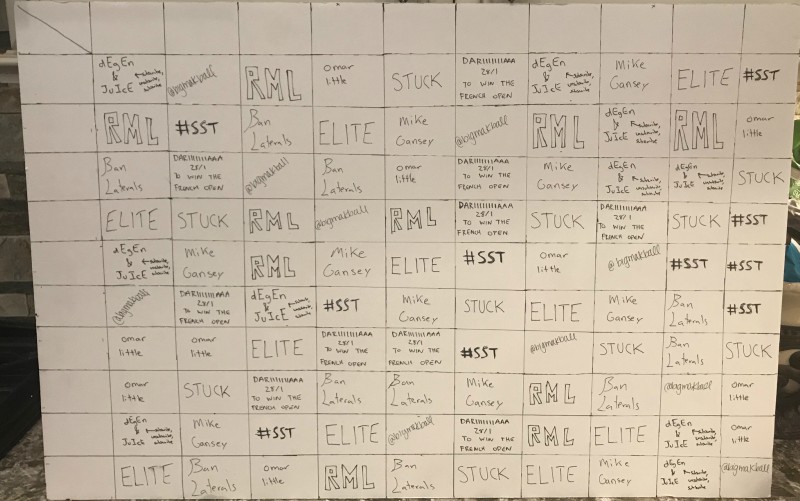 dEgEn
&
JuIcE
@bigmakball
RML
omar
little
STUCK
DARIIIIIIIIAAA
25/1
TO WIN THE
FRENCH OPEN
dEgEn
&
JuIcE
Mike
Gansey
ELITE
#SST
RML
#SST
Ban
Laterals
ELITE
Mike
Gansey
@bigmakball
RML
dEgEn
&
JuIcE
RML
omar
little
Ban
Laterals
DARIIIIIIIIAAA
25/1
TO WIN THE
FRENCH OPEN
@bigmakball
Ban
Laterals
omar
little
DARIIIIIIIIAAA
25/1
TO WIN THE
FRENCH OPEN
Mike
Gansey
dEgEn
&
JuIcE
dEgEn
&
JuIcE
STUCK
ELITE
STUCK
RML
@bigmakball
RML
DARIIIIIIIIAAA
25/1
TO WIN THE
FRENCH OPEN
STUCK
DARIIIIIIIIAAA
25/1
TO WIN THE
FRENCH OPEN
STUCK
#SST
dEgEn
&
JuIcE
Mike
Gansey
RML
Mike
Gansey
ELITE
#SST
omar
little
@bigmakball
#SST
#SST
@bigmakball
DARIIIIIIIIAAA
25/1
TO WIN THE
FRENCH OPEN
dEgEn
&
JuIcE
#SST
Mike
Gansey
STUCK
ELITE
Mike
Gansey
Ban
Laterals
#SST
omar
little
omar
little
ELITE
DARIIIIIIIIAAA
25/1
TO WIN THE
FRENCH OPEN
DARIIIIIIIIAAA
25/1
TO WIN THE
FRENCH OPEN
#SST
@bigmakball
STUCK
Ban
Laterals
STUCK
omar
little
STUCK
DARIIIIIIIIAAA
25/1
TO WIN THE
FRENCH OPEN
Ban
Laterals
Ban
Laterals
Mike
Gansey
RML
Ban
Laterals
@bigmakball
omar
little
dEgEn
&
JuIcE
Mike
Gansey
#SST
ELITE
@bigmakball
DARIIIIIIIIAAA
25/1
TO WIN THE
FRENCH OPEN
RML
ELITE
dEgEn
&
JuIcE
omar
little
ELITE
Ban
Laterals
omar
little
RML
Ban
Laterals
STUCK
ELITE
Mike
Gansey
dEgEn
&
JuIcE
@bigmakball